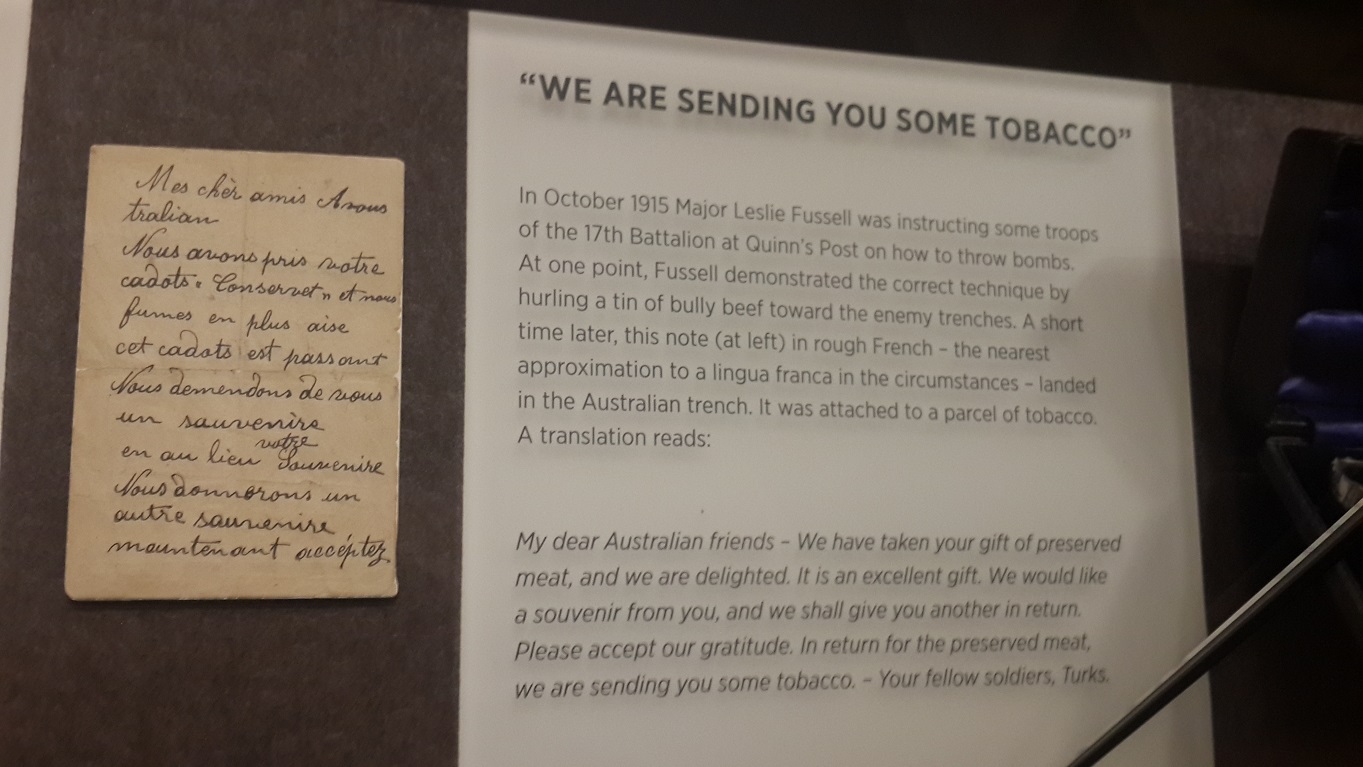 Mes chèr amis Avous
tralian
Nous avons pris votre
cadots "Conservet" et nous
fumes en plus aise
cet cadots est passant
Nous demendons de vous
un sauvenire
en au lieu votre Souvenire
Nous donnerons un
autre sauvenire
maintenant accéptez
"WE ARE SENDING YOU SOME TOBACCO"
In October 1915 Major Leslie Fussell was instructing some troops
of the 17th Battalion at Quinn's Post on how to throw bombs.
At one point, Fussell demonstrated the correct technique by
hurling a tin of bully beef toward the enemy trenches. A short
time later, this note (at left) in rough French – the nearest
approximation to a lingua franca in the circumstances – landed
in the Australian trench. It was attached to a parcel of tobacco.
A translation reads:
My dear Australian friends – We have taken your gift of preserved
meat, and we are delighted. It is an excellent gift. We would like
a souvenir from you, and we shall give you another in return.
Please accept our gratitude. In return for the preserved meat,
we are sending you some tobacco. – Your fellow soldiers, Turks.